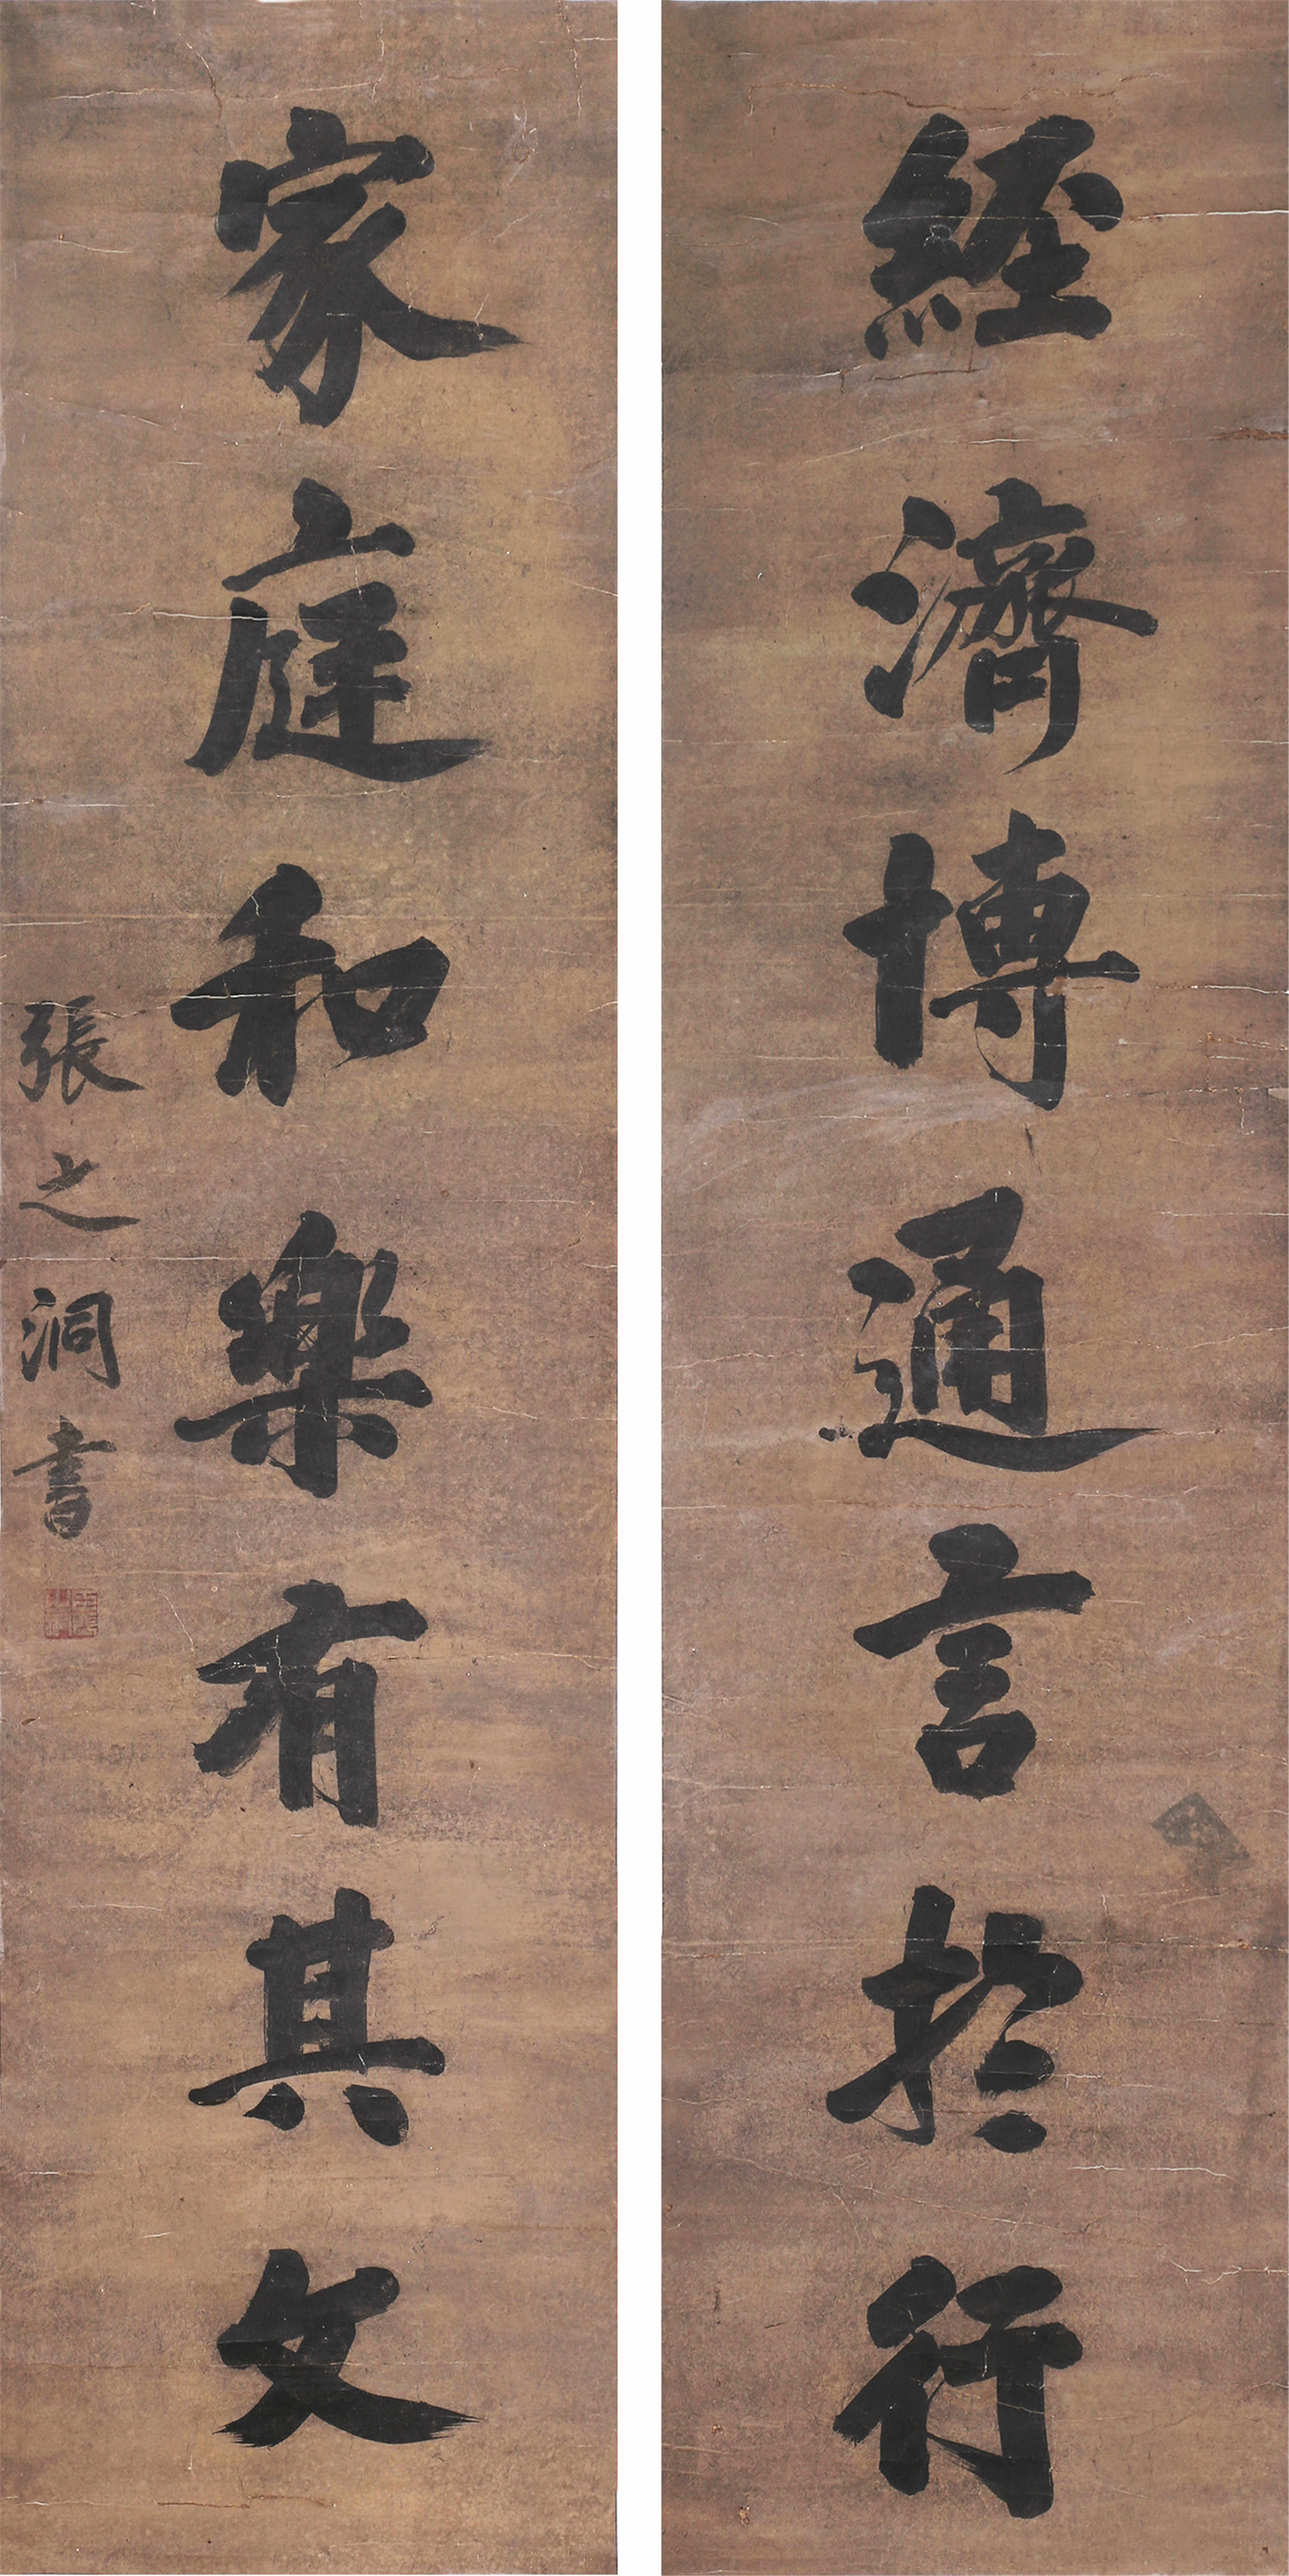 經濟博通言於行
家庭和樂有其文
張之洞書